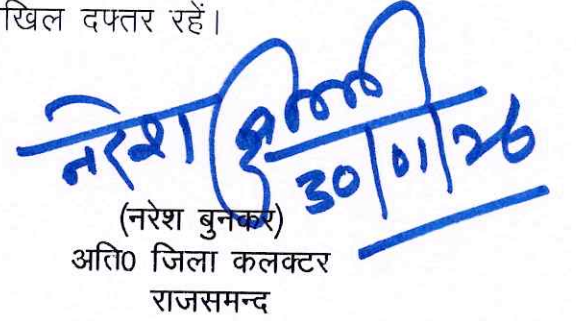 खिल दफ्तर रहें।
नरेश
30/01/26
(नरेश बुनकर)
अति0 जिला कलक्टर
राजसमन्द